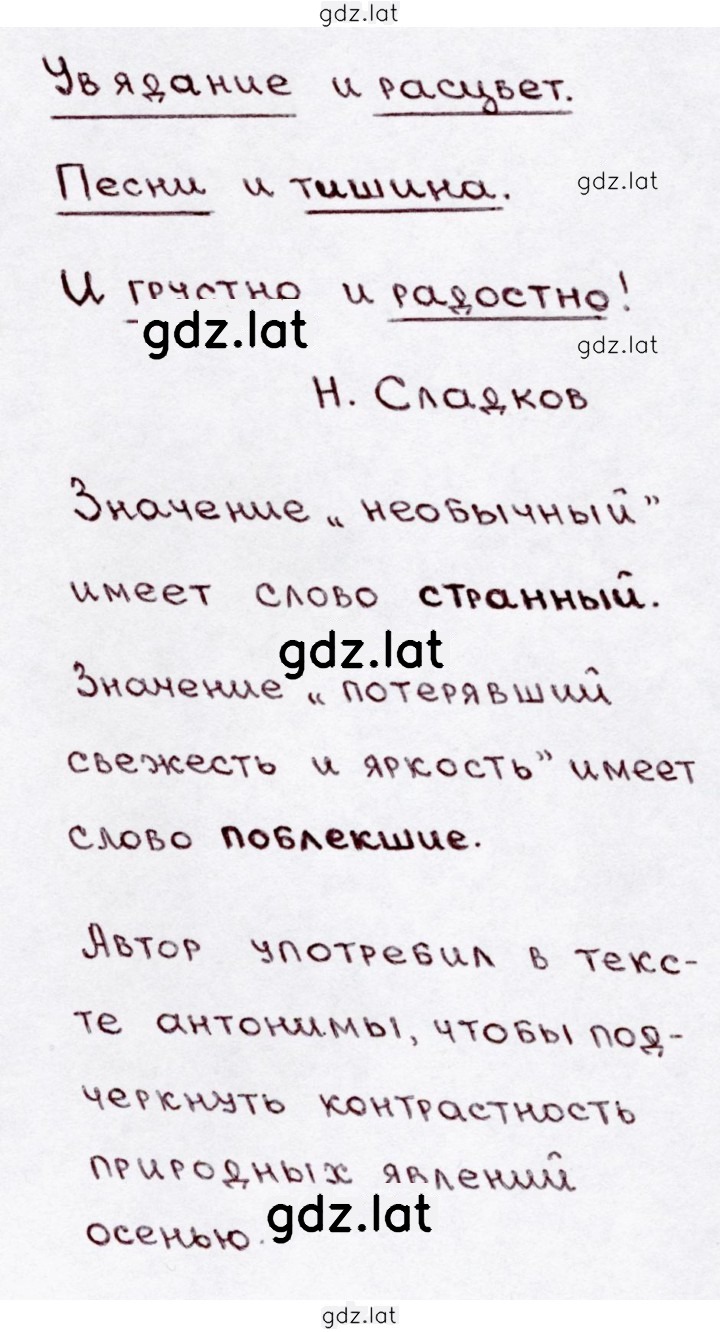 gdz.lat
Увядание и расцвет.
Песни и тишина.
gdz.lat
И грустно и радостно!
gdz.lat
gdz.lat
Н. Сладков
Значение „необычный”
имеет слово странный.
gdz.lat
Значение „потерявший
свежесть и яркость” имеет
слово поблекшие.
Автор употребил в текс-
те антонимы, чтобы под-
черкнуть контрастность
природных явлений
осенью.
gdz.lat
gdz.lat